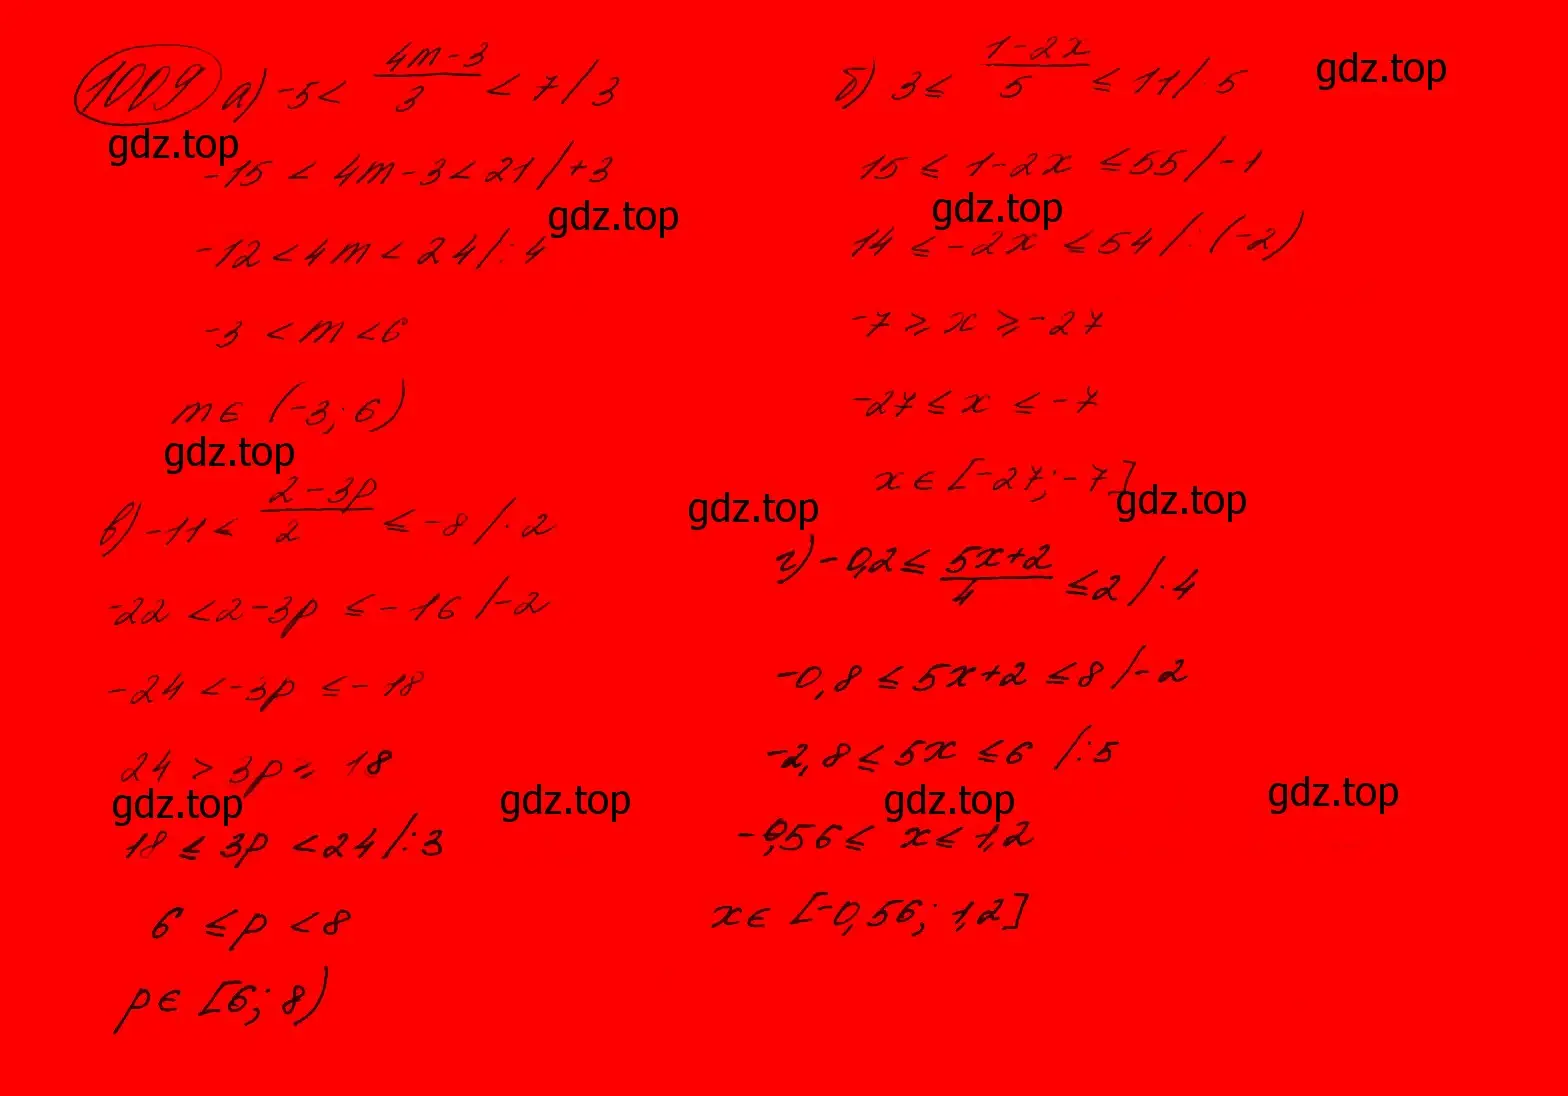 1009 а) -5 < (4m-3)/3 < 7 / 3
gdz.top
-15 < 4m-3 < 21 /+3
gdz.top
-12 < 4m < 24 /: 4
-3 < m < 6
m ∈ (-3; 6)
gdz.top
в) -11 < (2-3p)/2 ≤ -8 /· 2
-22 < 2-3p ≤ -16 /-2
-24 < -3p ≤ -18
24 > 3p ≥ 18
gdz.top
gdz.top
18 ≤ 3p < 24 /: 3
6 ≤ p < 8
p ∈ [6; 8)
б) 3 ≤ (1-2x)/5 ≤ 11 / 5
gdz.top
15 ≤ 1-2x ≤ 55 /-1
gdz.top
14 ≤ -2x ≤ 54 /: (-2)
-7 ≥ x ≥ -27
-27 ≤ x ≤ -7
x ∈ [-27; -7]
gdz.top
gdz.top
г) -0,2 ≤ (5x+2)/4 ≤ 2 /· 4
-0,8 ≤ 5x+2 ≤ 8 /-2
-2,8 ≤ 5x ≤ 6 /: 5
gdz.top
gdz.top
-0,56 ≤ x ≤ 1,2
x ∈ [-0,56; 1,2]